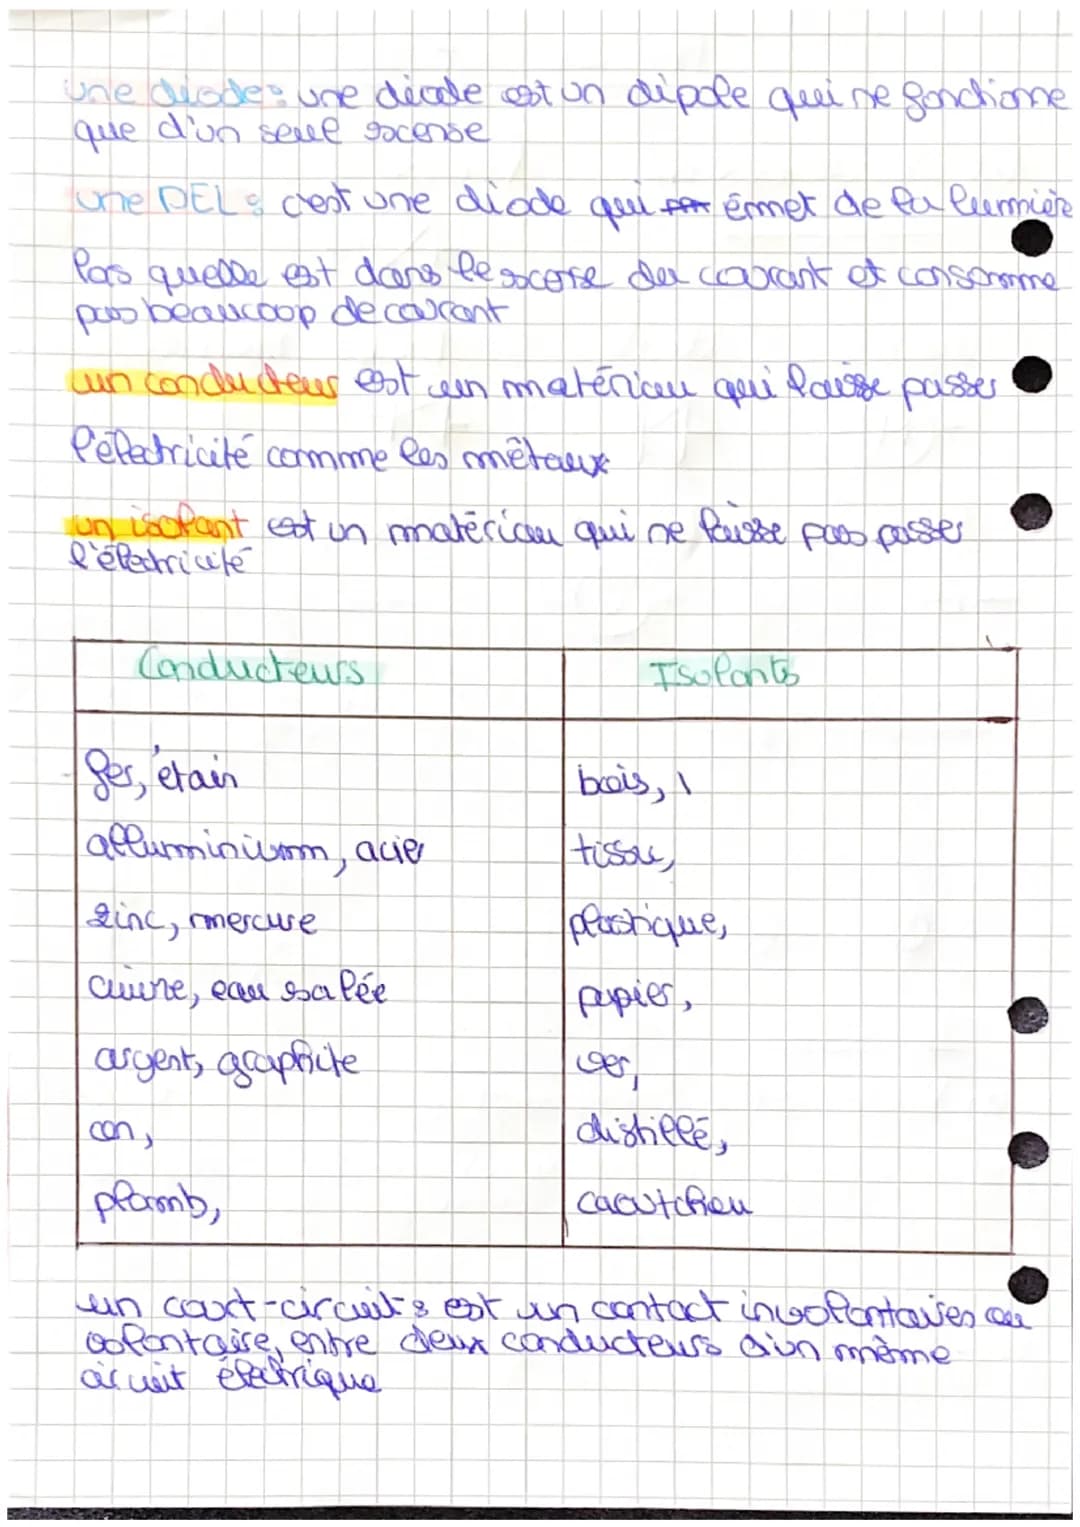 une diode : une diode est un dipole qui ne fonctionne
que d'un seul scense
une DEL : c'est une diode qui émet de la lumière
lors quelle est dans le scense du courant et consomme
pas beaucoup de courant
un conducteur est un matériau qui laisse passer
l'électricité comme les métaux
un isolant est un matériau qui ne laisse pas passer
l'électricité
Conducteurs
Isolants
fer, étain
bois,
alluminium, acier
tissu,
zinc, mercure
plastique,
cuivre, eau salée
papier,
argent, graphite
ver,
distillé,
plomb,
caoutchou
un court-circuit : est un contact involontaires ou
volontaire, entre deux conducteurs d'un même
circuit électrique